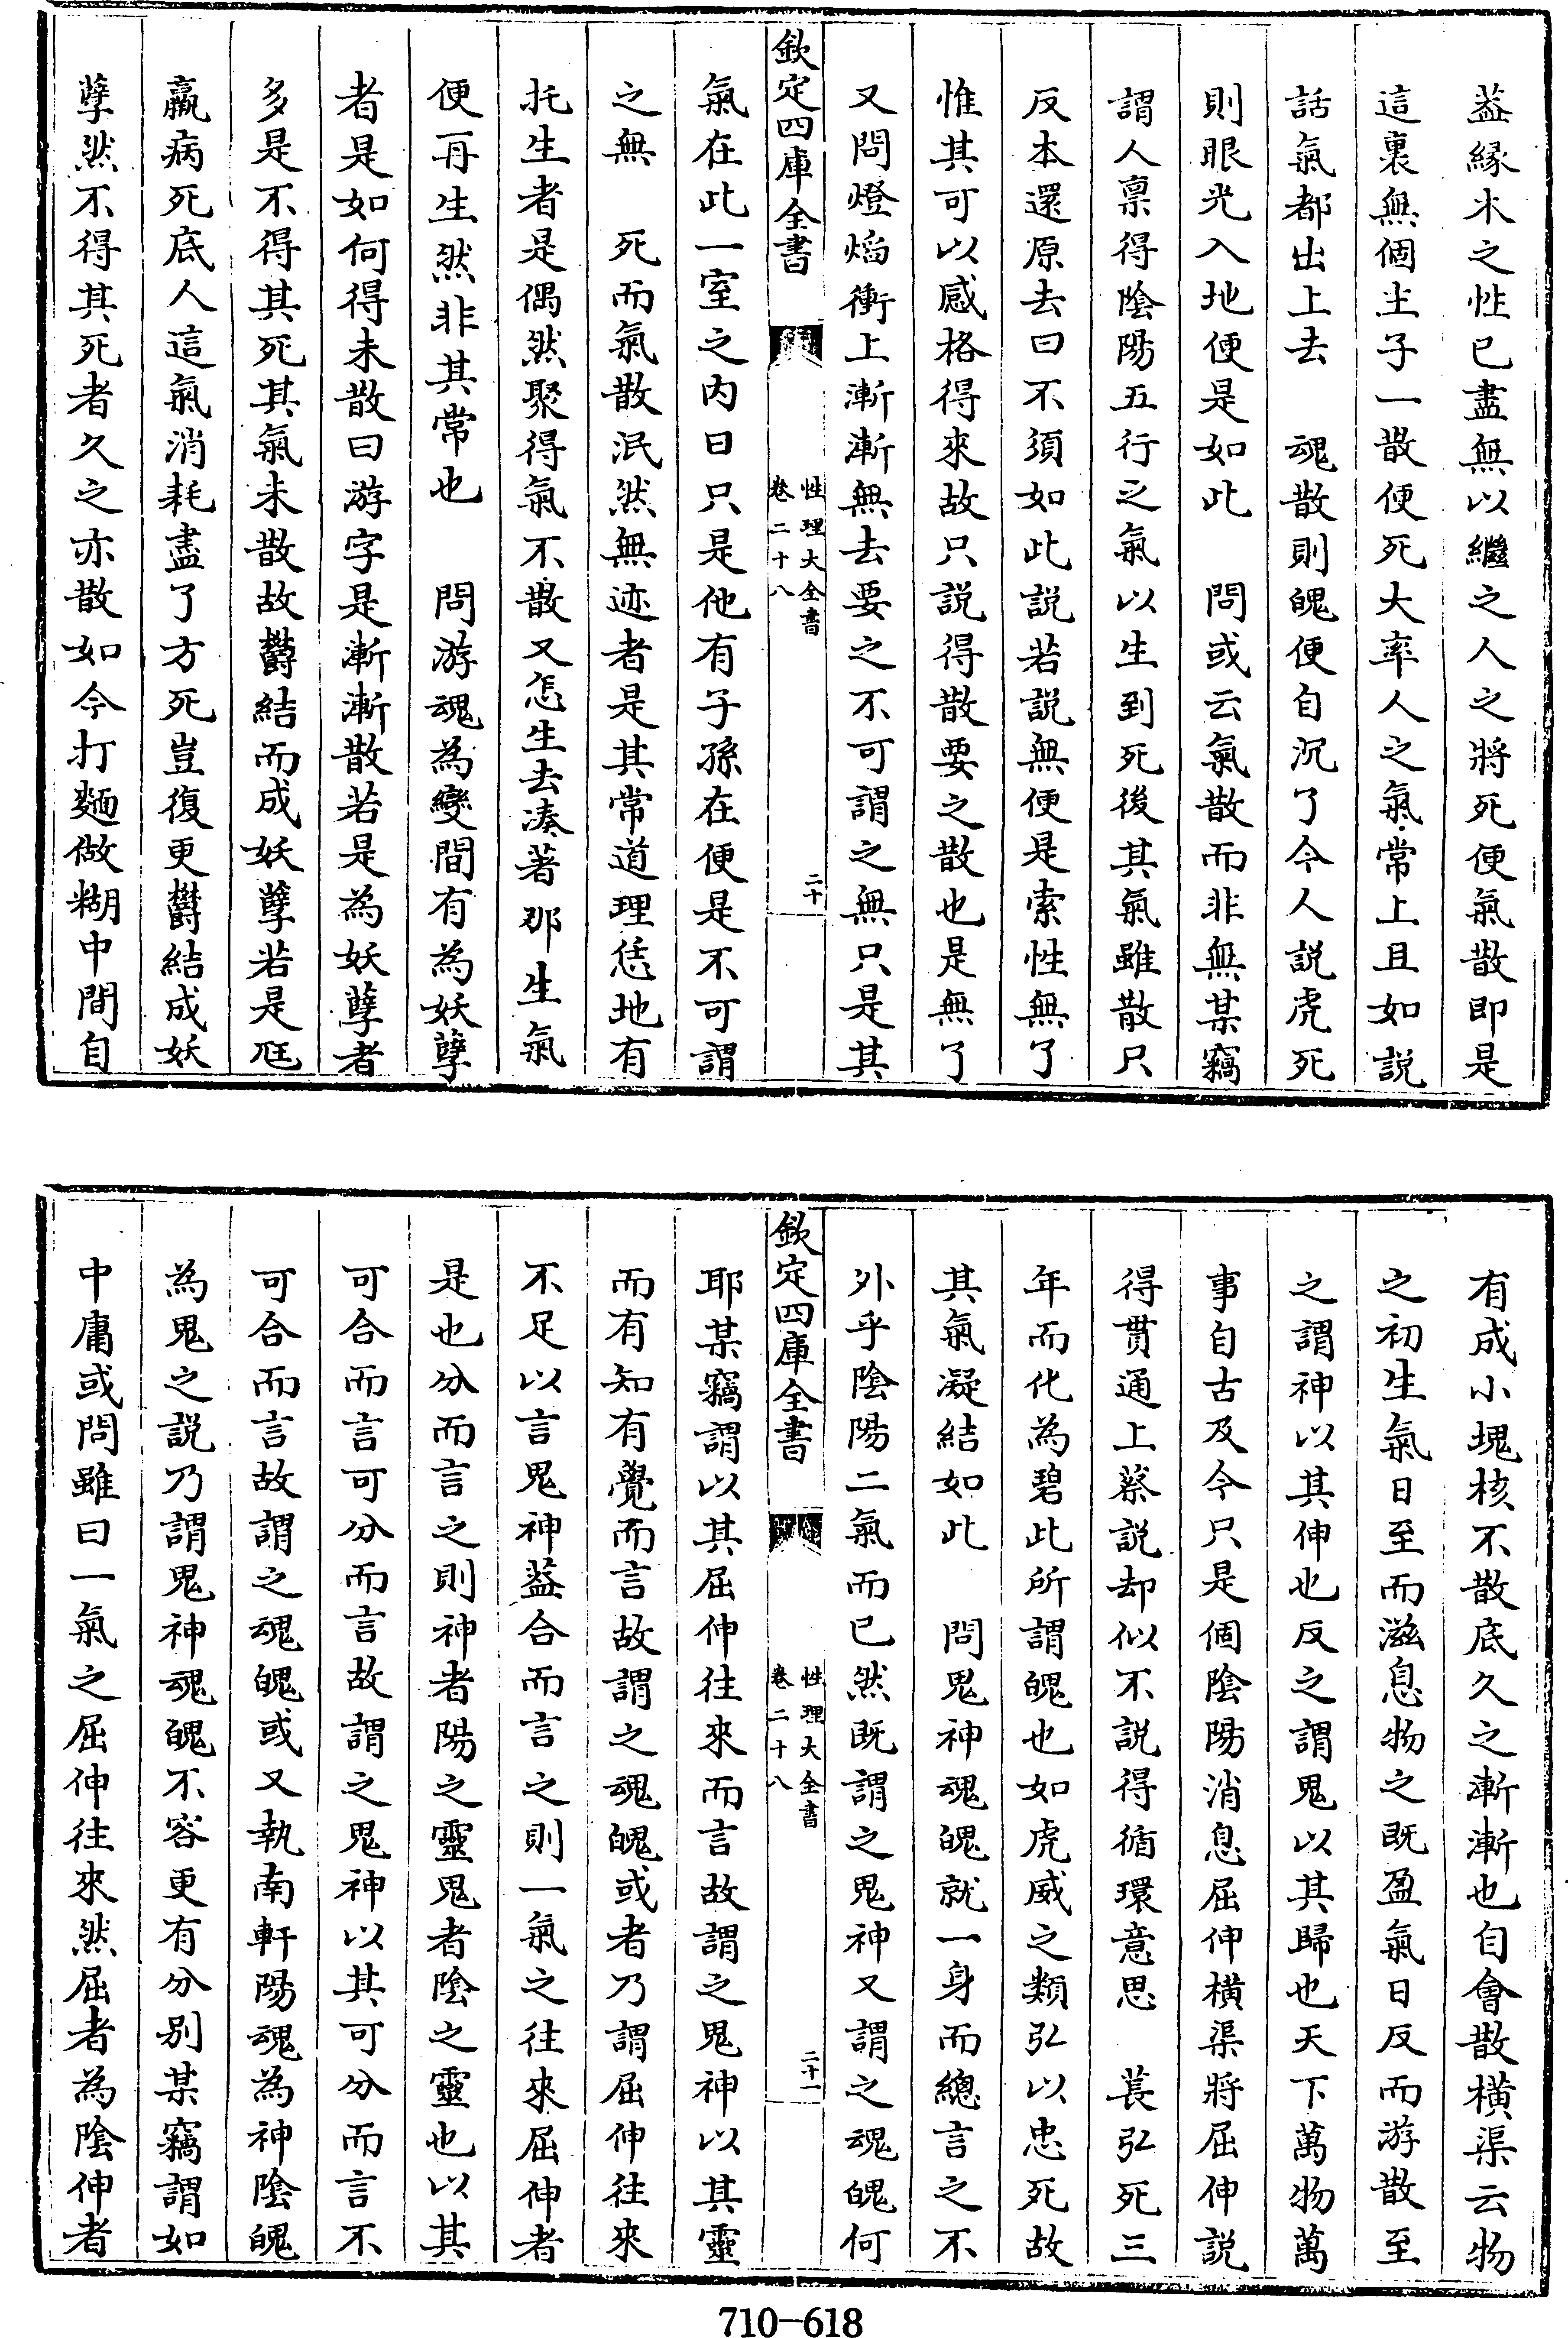 葢緣木之性已盡無以繼之人之將死便氣散即是
這裏無個主子一散便死大率人之氣常上且如説
話氣都出上去　魂散則魄便自沉了今人説虎死
則眼光入地便是如此　問或云氣散而非無某竊
謂人禀得陰陽五行之氣以生到死後其氣雖散只
反本還原去曰不須如此説若説無便是索性無了
惟其可以感格得來故只説得散要之散也是無了
又問燈焰衝上漸漸無去要之不可謂之無只是其
欽定四庫全書
性理大全書
卷二十八
二十
氣在此一室之内曰只是他有子孫在便是不可謂
之無　死而氣散泯然無迹者是其常道理恁地有
托生者是偶然聚得氣不散又怎生去湊著那生氣
便再生然非其常也　問游魂為變間有為妖孽
者是如何得未散曰游字是漸漸散若是為妖孽者
多是不得其死其氣未散故欝結而成妖孽若是尫
羸病死底人這氣消耗盡了方死豈復更欝結成妖
孽然不得其死者久之亦散如今打麵做糊中間自
有成小塊核不散底久之漸漸也自會散横渠云物
之初生氣日至而滋息物之既盈氣日反而游散至
之謂神以其伸也反之謂鬼以其歸也天下萬物萬
事自古及今只是個陰陽消息屈伸横渠將屈伸説
得貫通上蔡説却似不説得循環意思　萇弘死三
年而化為碧此所謂魄也如虎威之類弘以忠死故
其氣凝結如此　問鬼神魂魄就一身而總言之不
外乎陰陽二氣而已然既謂之鬼神又謂之魂魄何
欽定四庫全書
性理大全書
卷二十八
二十一
耶某竊謂以其屈伸往來而言故謂之鬼神以其靈
而有知有覺而言故謂之魂魄或者乃謂屈伸往來
不足以言鬼神葢合而言之則一氣之往來屈伸者
是也分而言之則神者陽之靈鬼者陰之靈也以其
可合而言可分而言故謂之鬼神以其可分而言不
可合而言故謂之魂魄或又執南軒陽魂為神陰魄
為鬼之説乃謂鬼神魂魄不容更有分别某竊謂如
中庸或問雖曰一氣之屈伸往來然屈者為陰伸者
710-618